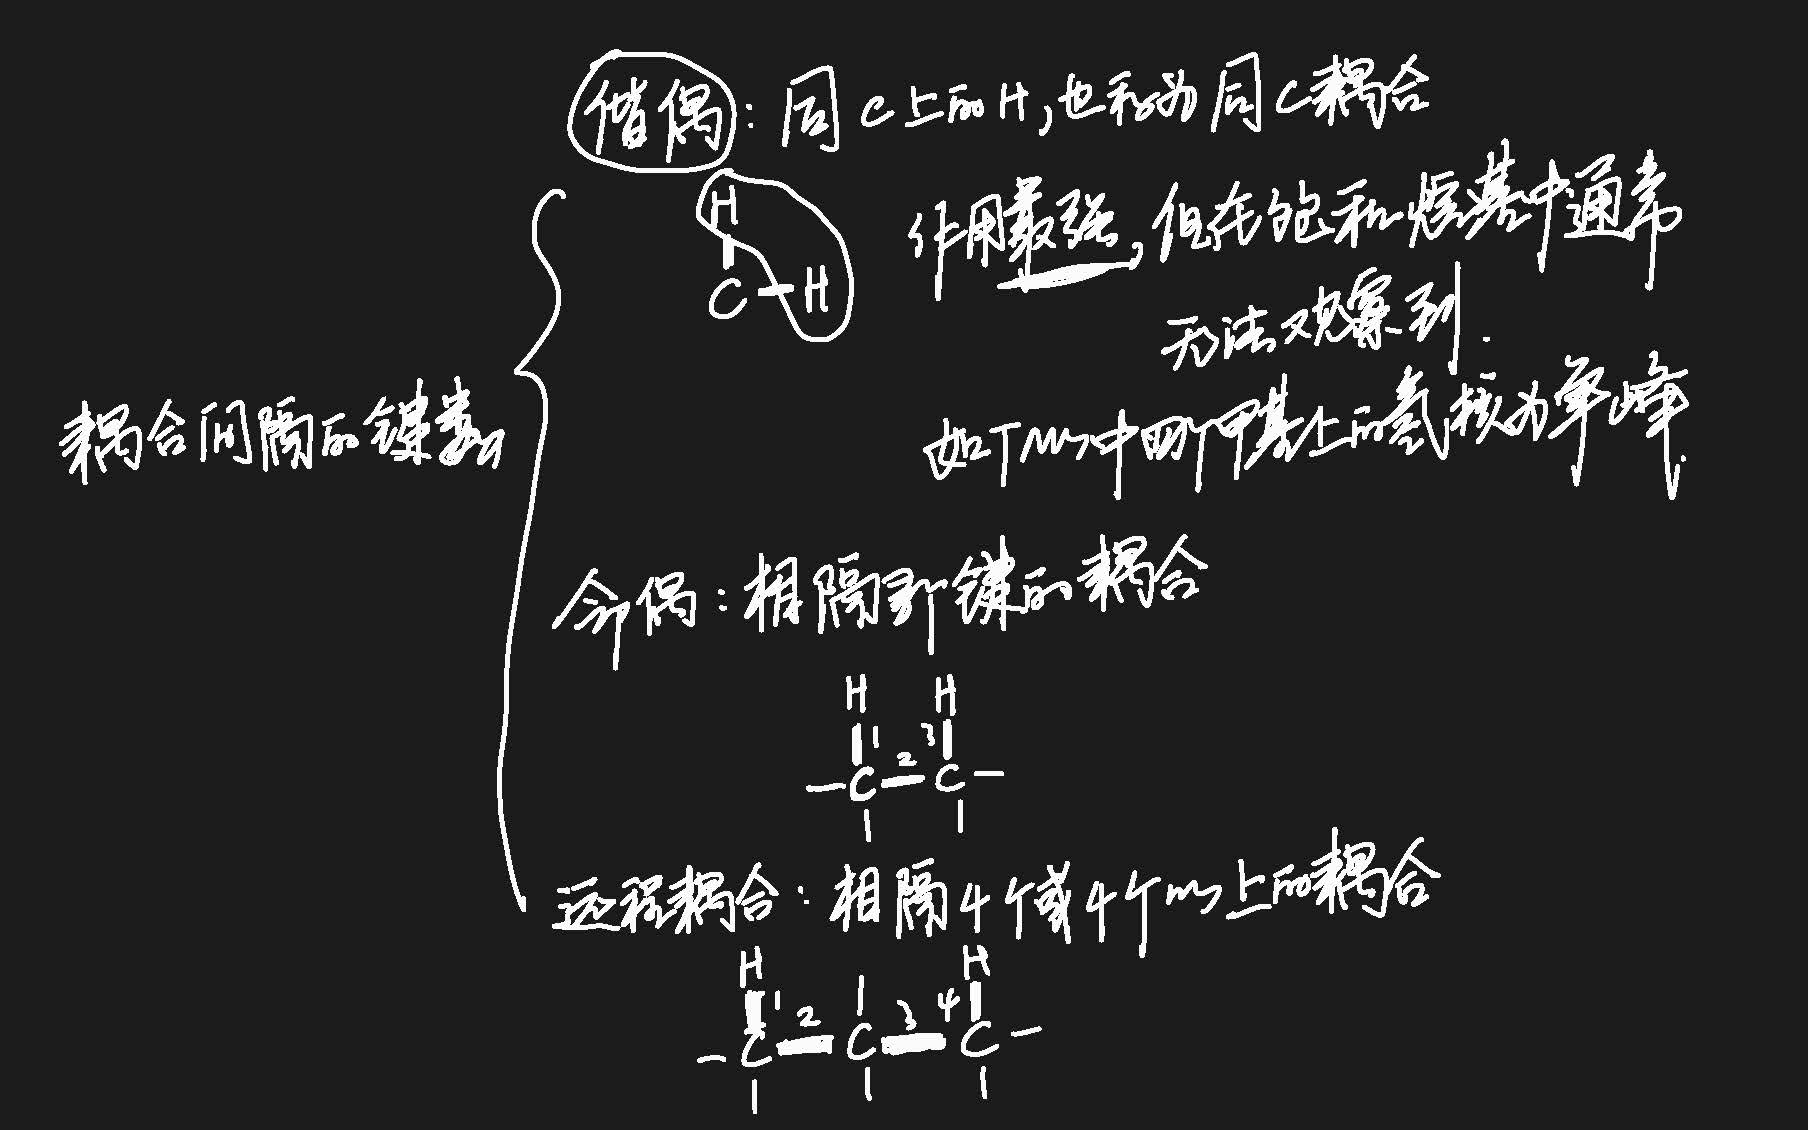 偕偶：同C上的H，也称为同C耦合
作用最强，但在饱和烃基中通常
无法观察到.
如TMS中四个甲基上的氢核为单峰.
H
C-H
耦合间隔的键数
邻偶：相隔3个键的耦合
H H
1 2 3
-C-C-
远程耦合：相隔4个或4个以上的耦合
H H
1 2 3 4
-C-C-C-